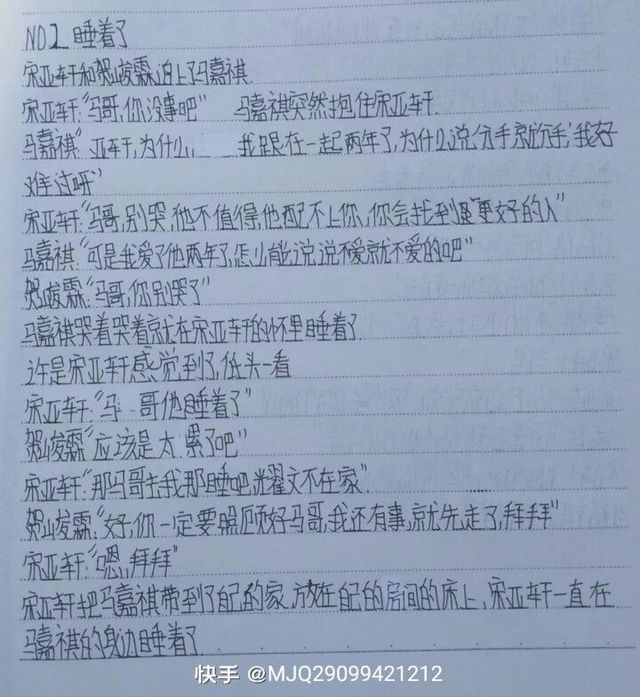 NO2 睡着了
宋亚轩和贺峻霖追上了马嘉祺.
宋亚轩:“马哥,你没事吧” 马嘉祺突然抱住宋亚轩.
马嘉祺:“亚轩,为什么, 我跟在一起两年了,为什么说分手就分手,我好
难过呀”
宋亚轩:“马哥,别哭,他不值得,他配不上你,你会找到更好的人”
马嘉祺:“可是我爱了他两年了,怎么能说说不爱就不爱的吧”
贺峻霖:“马哥,你别哭了”
马嘉祺哭着哭着就在宋亚轩的怀里睡着了.
许是宋亚轩感觉到了,低头一看
宋亚轩:“马 哥他睡着了”
贺峻霖:“应该是太 累了吧”
宋亚轩:“那马哥去我那睡吧,耀文不在家”.
贺峻霖:“好,你一定要照顾好马哥,我还有事,就先走了,拜拜”
宋亚轩:“嗯,拜拜”
宋亚轩把马嘉祺带到了自己的家,放在自己的房间的床上,宋亚轩一直在
马嘉祺的身边睡着了.
快手 @MJQ29099421212